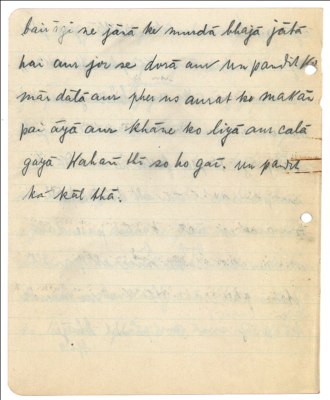 bairāgi ne jārā ke murdā bhajā jātā
hai aur jor se dorā aur un pandit ko
mār dālā aur pher us aurat ko makān
pai āyā aur khāne ko liyā aur calā
gayā Kahanī thī so ho gaī. un pandit
kā kāl thā.